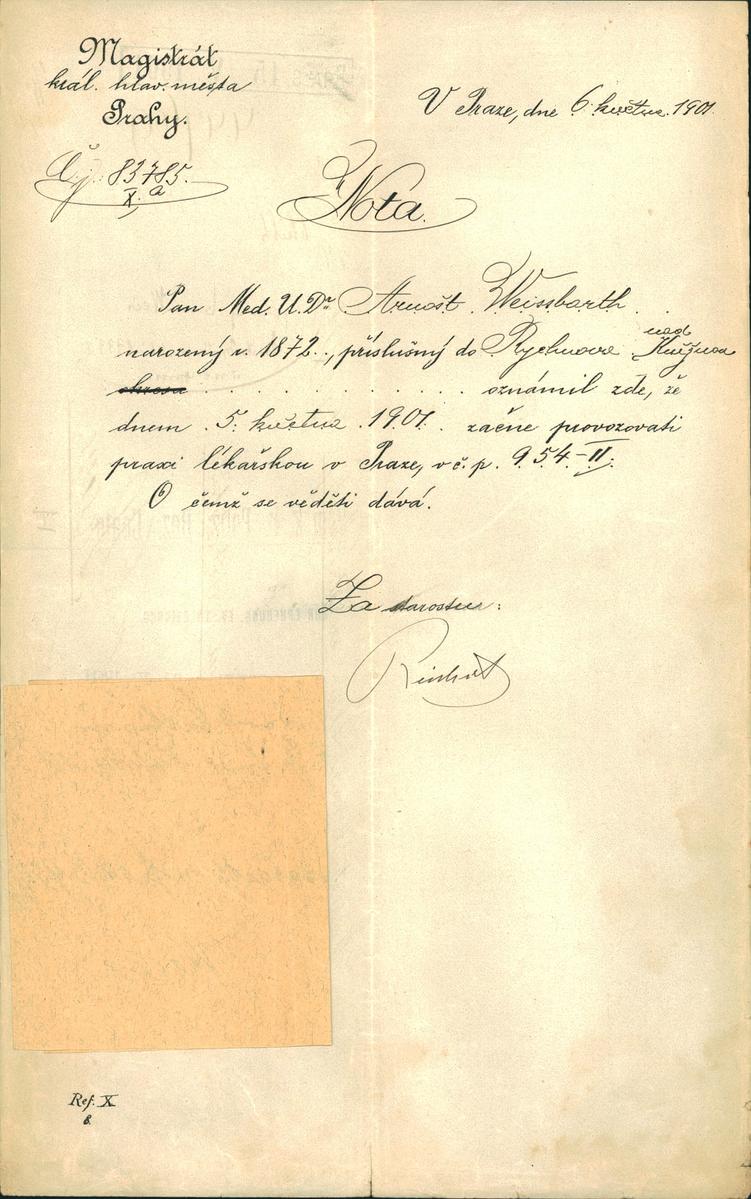 Magistrát
král. hlav. města
Prahy.
V Praze, dne 6. května 1901
Čj. 83785.
X. a
Nota.
Pan Med. U. Dr Arnošt Weissbarth
narozený r. 1872., příslušný do Rychnova nad Kněžnou
okresu . . . . . . . . . . . . . oznámil zde, že
dnem 5. května 1901. začne provozovati
praxi lékařskou v Praze, v č. p. 954-II.
O čemž se věděti dává.
Za starostu:
Ref. X